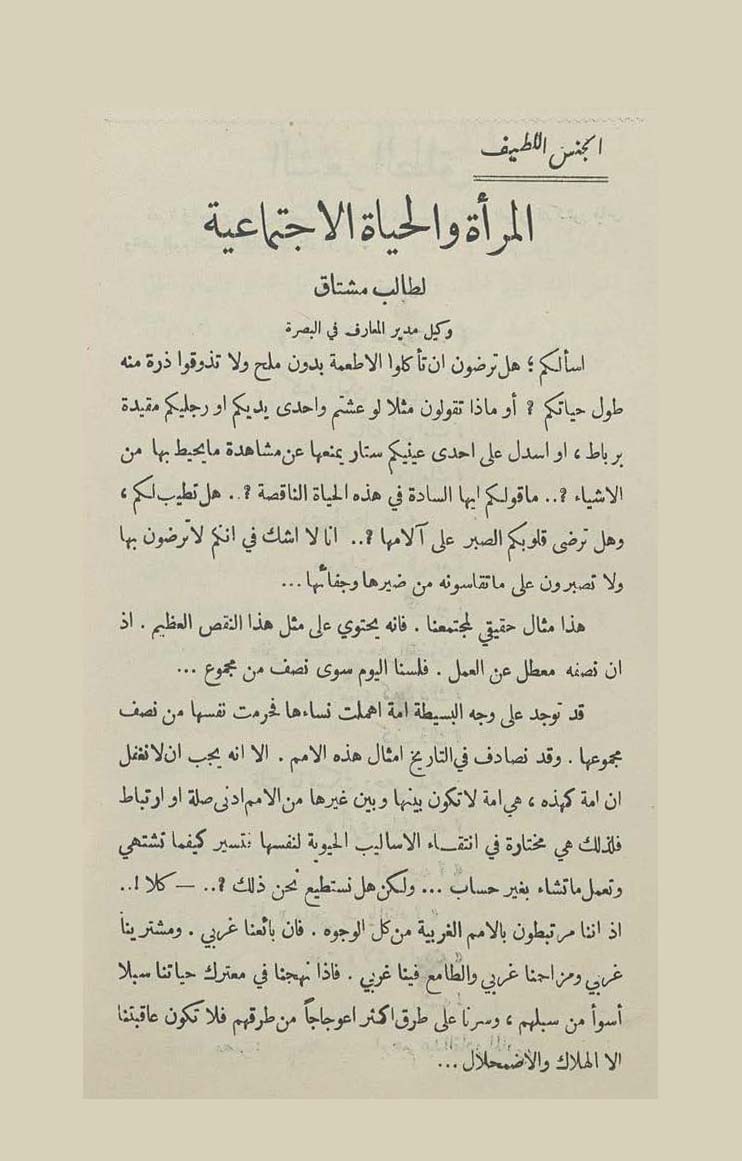 الجنس اللطيف
المرأة والحياة الاجتماعية
لطالب مشتاق
وكيل مدير المعارف في البصرة
اسألكم ؛ هل ترضون ان تأكلوا الاطعمة بدون ملح ولا تذوقوا ذرة منه
طول حياتكم ? أو ماذا تقولون مثلا لو عشتم واحدى يديكم او رجليكم مقيدة
برباط ، او اسدل على احدى عينيكم ستار يمنعها عن مشاهدة مايحيط بها من
الاشياء ?.. ماقولكم ايها السادة في هذه الحياة الناقصة ?.. هل تطيب لكم ،
وهل ترضى قلوبكم الصبر على آلامها ?.. انا لا اشك في انكم لا ترضون بها
ولا تصبرون على ماتقاسونه من ضيرها وجفائها ...
هذا مثال حقيقي لمجتمعنا . فانه يحتوي على مثل هذا النقص العظيم . اذ
ان نصفه معطل عن العمل . فلسنا اليوم سوى نصف من مجموع ...
قد توجد على وجه البسيطة امة اهملت نساءها فحرمت نفسها من نصف
مجموعها . وقد نصادف في التاريخ امثال هذه الامم . الا انه يجب ان لا نغفل
ان امة كهذه ، هي امة لا تكون بينها وبين غيرها من الامم ادنى صلة او ارتباط
فلذلك هي مختارة في انتقاء الاساليب الحيوية لنفسها فتسير كيفما تشتهي
وتعمل ماتشاء بغير حساب ... ولكن هل نستطيع نحن ذلك ?.. — كلا !..
اذ اننا مرتبطون بالامم الغربية من كل الوجوه . فان بائعنا غربي . ومشترينا
غربي ومزاحمنا غربي والطامع فينا غربي . فاذا نهجنا في معترك حياتنا سبلا
أسوأ من سبلهم ، وسرنا على طرق اكثر اعوجاجاً من طرقهم فلا تكون عاقبتنا
الا الهلاك والاضمحلال ...